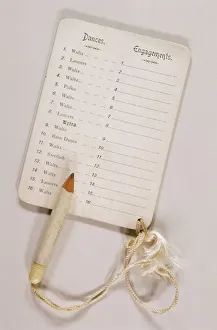 Dances. Engagements.
1. Waltz 1.
2. Lancers 2.
3. Waltz 3.
4. Waltz 4.
5. Polka 5.
6. Waltz 6.
7. Waltz 7.
8. Lancers 8.
9. Waltz 9.
10. Barn Dance 10.
11. Waltz 11.
12. 12.
13. Waltz 13.
14. Waltz
15. Lancers 15.
16. Waltz 16.